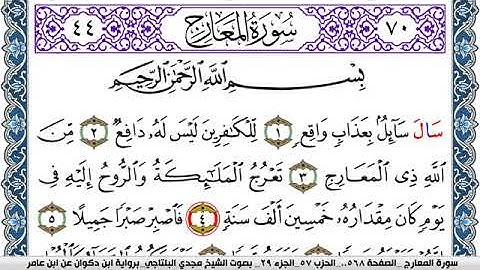 ٧٠ سُورَةُ المَعَارِجِ ٤٤
بِسْمِ اللَّهِ الرَّحْمَٰنِ الرَّحِيمِ
سَالَ سَآئِلُۢ بِعَذَابٍ وَاقِعٍ ١ لِّلْكَافِرِينَ لَيْسَ لَهُۥ دَافِعٌ ٢ مِّنَ
اللَّهِ ذِي الْمَعَارِجِ ٣ تَعْرُجُ الْمَلَٰٓئِكَةُ وَالرُّوحُ إِلَيْهِ فِي
يَوْمٍ كَانَ مِقْدَارُهُۥ خَمْسِينَ أَلْفَ سَنَةٍ ٤ فَاصْبِرْ صَبْرًا جَمِيلًا ٥
سورة المعارج _ الصفحة ٥٦٨،، الحزب ٥٧_الجزء ٢٩_ بصوت الشيخ مجدي البلتاجي_برواية ابن دكوان عن ابن عامر